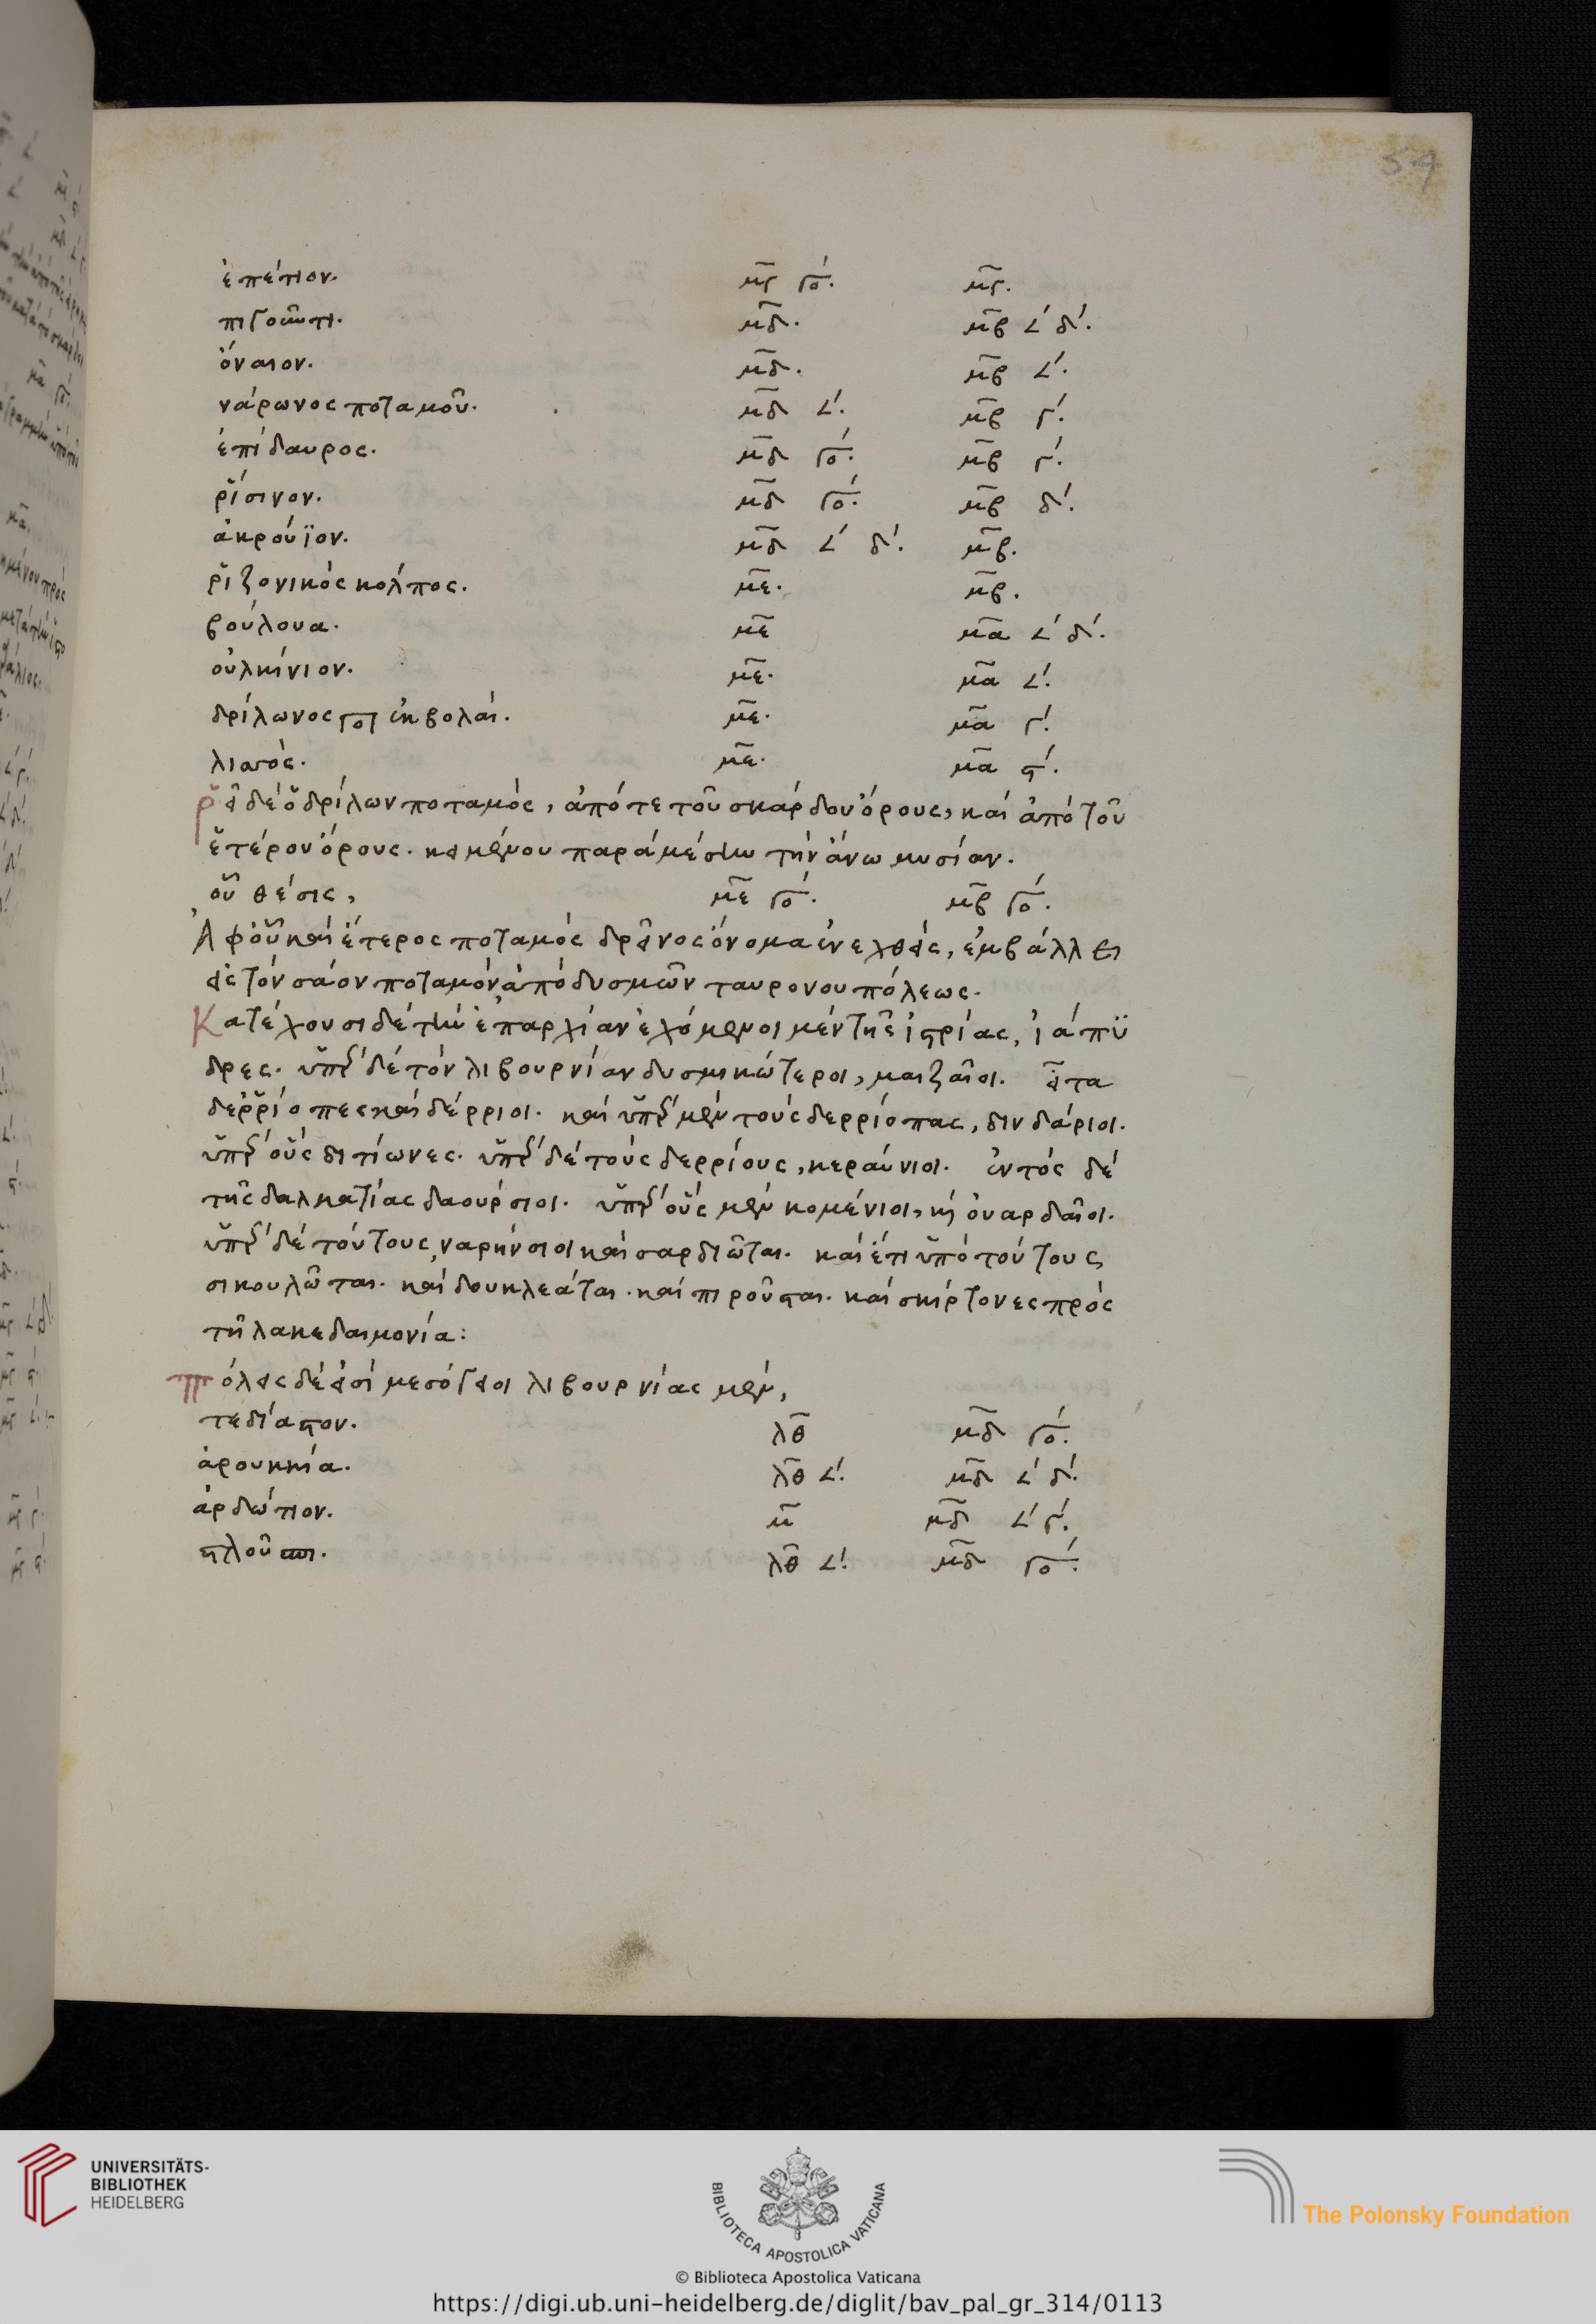 54
ἐπέτιον. μ̅γ γο̅΄. μ̅γ.
πιγούντι. μ̅δ. μ̅β ∠΄ δ΄.
ὄναιον. μ̅δ. μ̅β ∠΄.
νάρωνος ποταμοῦ. μ̅δ ∠΄. μ̅β γ΄.
ἐπίδαυρος. μ̅δ γο̅΄. μ̅β γ΄.
ῥίσινον. μ̅δ γο̅΄. μ̅β δ΄.
ἀκρούϊον. μ̅δ ∠΄ δ΄. μ̅β.
ῥιζονικὸς κολπος. μ̅ε. μ̅β.
βούλουα. μ̅ε μ̅α ∠΄ δ΄.
οὐλκίνιον. μ̅ε. μ̅α ∠΄.
δρίλωνος ποτ ἐκβολαί. μ̅ε. μ̅α γ΄.
λισσός. μ̅ε. μ̅α ϛ΄.
ῥεῖ δὲ ὁ δρίλων ποταμὸς, ἀπό τε τοῦ σκάρδου ὄρους, καὶ ἀπὸ τοῦ
ἑτέρου ὄρους. κειμένου παρὰ μέσην τὴν ἄνω μυσίαν.
οὗ θέσις, μ̅ε γο̅΄. μ̅β γο̅΄.
Ἀφ οὗ καὶ ἕτερος ποταμὸς δρεῖνος ὄνομα ἐνελθεὶς, ἐμβάλλει
εἰς τὸν σάον ποταμὸν ἀπὸ δυσμῶν ταυρονου πόλεως.
Κατέχουσι δὲ τὴν ἐπαρχίαν ἐχόμενοι μὲν τῆς ἰστρίας, ἰάπϋ
δρες. ὑπὲρ δὲ τὸν λιβουρνίαν δυσμικώτεροι, μαιζαῖοι. εἶτα
δεῤῥίοπες καὶ δέρριοι. καὶ ὑπὲρ μὲν τοὺς δερρίοπας, δινδάριοι.
ὑπὲρ οὓς διτίωνες. ὑπὲρ δὲ τοὺς δερρίους, κεραύνιοι. ἐντὸς δὲ
τῆς δαλματίας δαουρσιοι. ὑπὲρ οὓς μὲν κομένιοι, κὶ ὀυαρδαῖοι.
ὑπὲρ δὲ τούτους, ναρήνσιοι καὶ σαρδιῶται. καὶ ἔτι ὑπὸ τούτους
σικουλῶται. καὶ δουκλεάται. καὶ πιροῦσται. καὶ σκίρτονες πρὸς
τῆ λακεδαιμονία:
πόλεις δέ εἰσί μεσόγειοι λιβουρνίας μὲν,
τεδίαστον. λ̅θ μ̅δ γο̅΄.
ἀρουκκία. λ̅θ ∠΄. μ̅δ ∠΄ δ΄.
ἀρδώτιον. μ̅ μ̅δ ∠΄ γ΄.
στλοῦπι. λ̅θ ∠΄. μ̅δ γο̅΄.
UNIVERSITÄTS-
BIBLIOTHEK
HEIDELBERG
BIBLIOTECA APOSTOLICA VATICANA
The Polonsky Foundation
© Biblioteca Apostolica Vaticana
https://digi.ub.uni-heidelberg.de/diglit/bav_pal_gr_314/0113